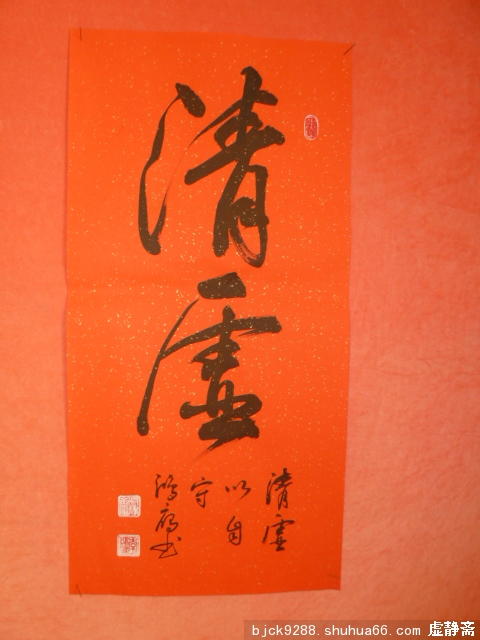 清虚
清虚
以自
守
鸿
书
bjck9288. shuhua66. com 虚静斋